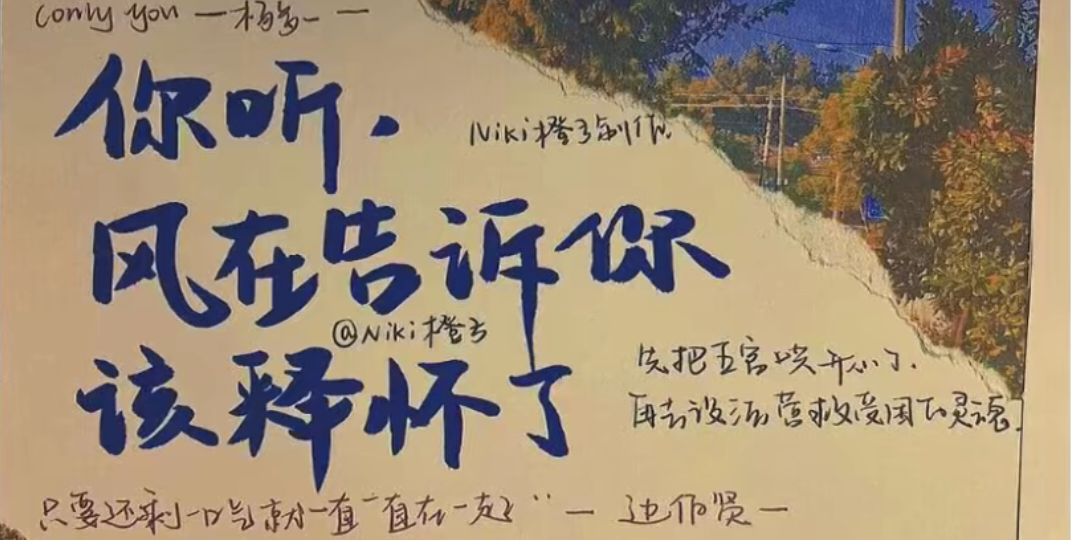 (only you — 杨多一 —
你听，
Niki橙子制作
风在告诉你
@Niki橙子
该释怀了
先把五官哄开心了.
再去设法营救受困的灵魂.
只要还剩一口气就一直一直在一起" — 边伯贤 —